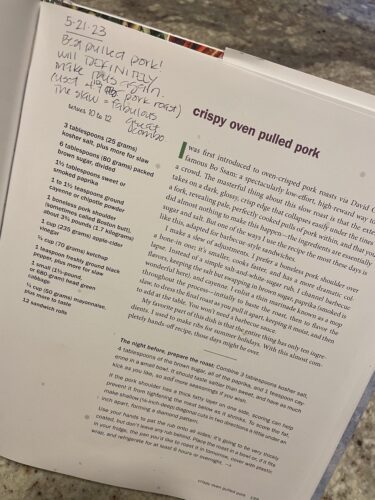 5-21-23
Best pulled pork!
will DEFINITELY
make this again.
(used 4# pork roast)
The slaw = fabulous
great
combo
SERVES 10 to 12
crispy oven pulled pork
3 tablespoons (25 grams)
kosher salt, plus more for slaw
6 tablespoons (80 grams) packed
brown sugar, divided
1½ tablespoons sweet or
smoked paprika
1 to 1½ teaspoons ground
cayenne or chipotle powder
1 boneless pork shoulder
(sometimes called Boston butt),
about 3¾ pounds (1.7 kilograms)
1 cup (235 grams) apple-cider
vinegar
¼ cup (70 grams) ketchup
1 teaspoon freshly ground black
pepper, plus more for slaw
1 small (1½-pound,
or 680 gram) head green
cabbage
¼ cup (50 grams) mayonnaise,
plus more to taste
12 sandwich rolls
I was first introduced to oven-crisped pork roasts via David
famous Bo Ssam: a spectacularly low-effort, high-reward way to
a crowd. The masterful thing about this slow roast is that the exterior
takes on a dark, glossy, crisp edge that collapses easily under the tines
a fork, revealing pull, perfectly cooked puffs of pork within, and that you
did almost nothing to make this happen. The ingredients are essentially
sugar and salt. But one of the ways I use the recipe the most these days is
like this, adapted for barbecue-style sandwiches.
I make a slew of adjustments. I prefer a boneless pork shoulder over
a bone-in one; it's smaller, cooks faster, and has a more dramatic col-
lapse. Instead of a simple salt-and-white sugar rub, I channel barbecue
flavors, keeping the salt but swapping in brown sugar, paprika (smoked is
wonderful here), and cayenne. I enlist a thin marinade known as a mop
throughout the process—initially to baste the roast, then to flavor the
slaw, to drizzle the final roast as you pull it apart, keeping it moist, and then
to add at the table. You won't need a barbecue sauce.
My favorite part of this dish is that the entire thing has only ten ingre-
dients. I used to make this for summer holidays. With this almost com-
pletely hands-off recipe, those days might be over.
The night before, prepare the roast: Combine 3 tablespoons kosher salt,
4 tablespoons of the brown sugar, all of the paprika, and 1 teaspoon cay-
enne in a small bowl. It should taste saltier than sweet, and have as much
kick as you like, so add more seasonings if you wish.
If the pork shoulder has a thick fatty layer on one side, scoring can help
prevent it from tightening the roast below as it shrinks. To score the fat,
make shallow (¼-inch-deep) diagonal cuts in two directions a little under an
inch apart, forming a diamond pattern.
Use your hands to pat the rub onto all sides; it's going to be very thickly
coated, but don't leave any rub behind. Place the roast in a bowl or, if it fits
in your fridge, the pan you'd like to roast it in tomorrow, cover with plastic
wrap, and refrigerate for at least 8 hours or overnight. →
crispy oven pulled pork